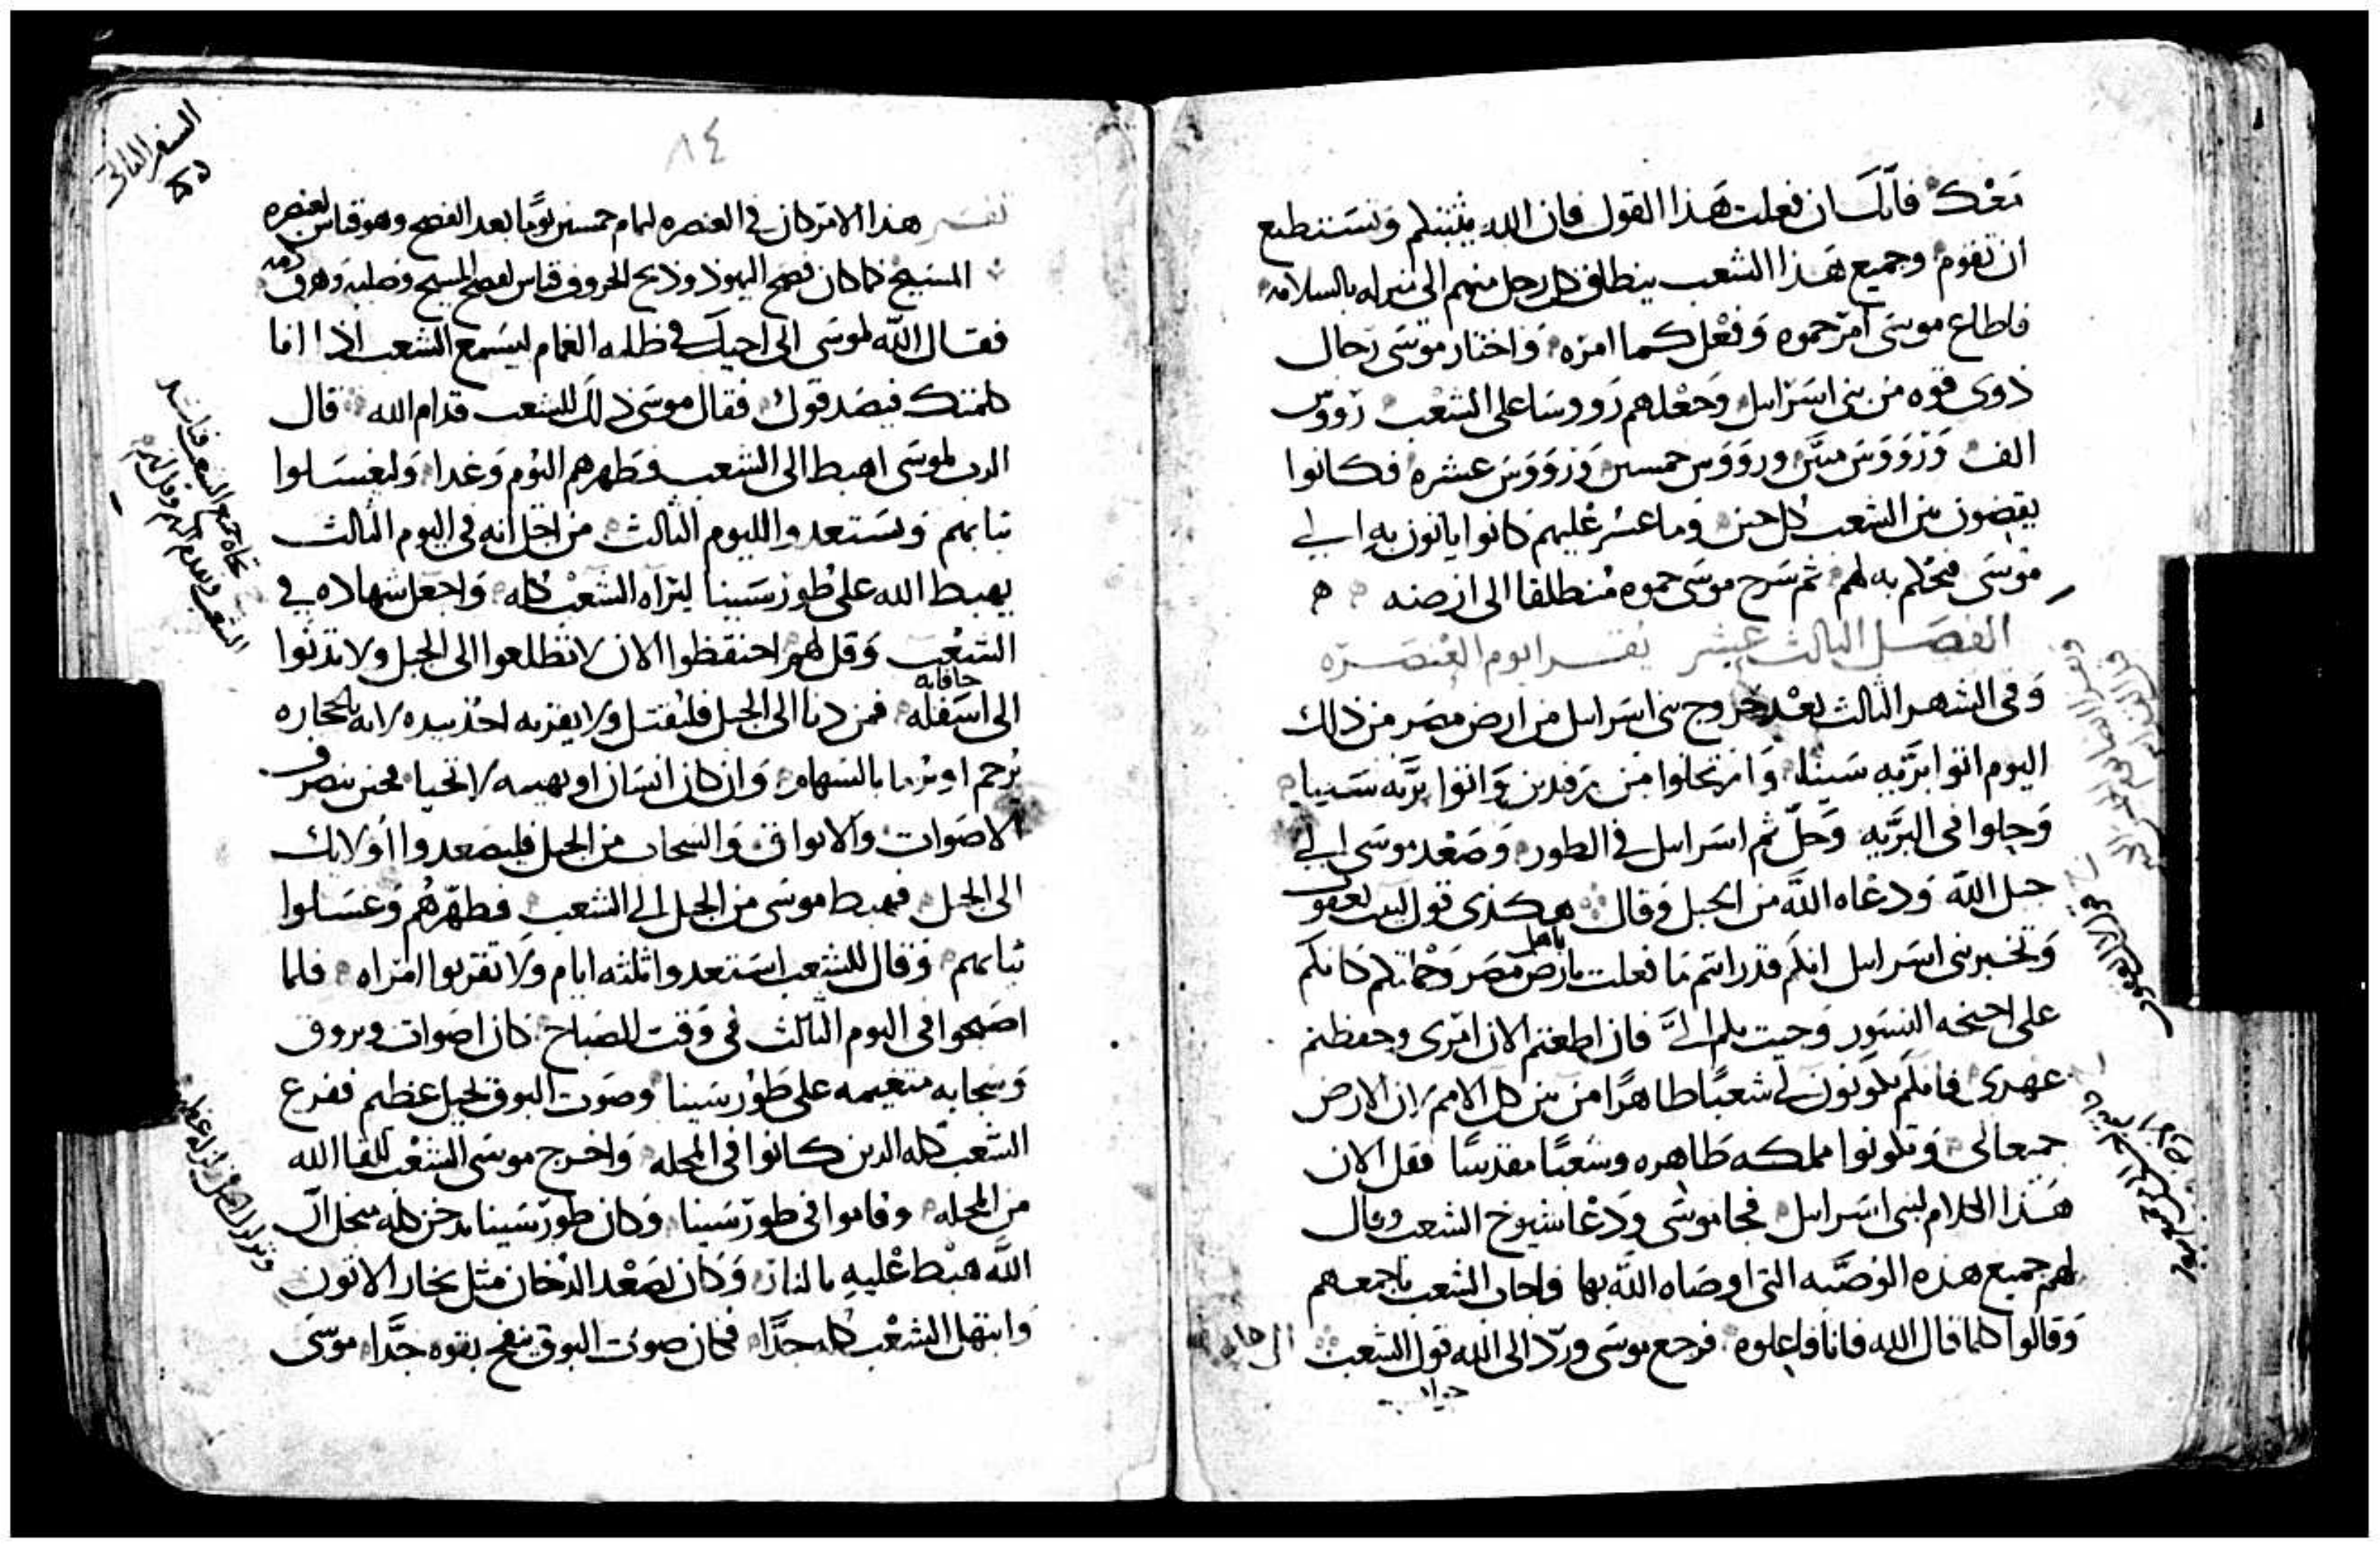 معك فانك ان فعلت هذا القول فان الله يثبتكم وتستطيع
ان تقوم وجميع هذا الشعب ينطلق كل رجل منهم الى منزله بالسلامه
فاطاع موسى امر حموه وفعل كما امره واختار موسى رجال
ذوى قوه من بنى اسراىىل وجعلهم رووسا على الشعب رووس
الف ورووس مىىن ورووس خمسين ورووس عشره فكانوا
يقضون بىن الشعب كل حىن وما عسر عليهم كانوا ياتون به الى
موسى فيحكم به لهم ثم سرح موسى حموه منطلقا الى ارضه
الفصل الثالث عشر يقرا يوم العنصره
وفى الشهر الثالث بعد خروج بنى اسراىىل من ارض مصر من ذلك
اليوم اتوا بريه سينا وارتحلوا من رفدين واتوا بريه سينا
وحلوا فى البريه وحل ثم اسراىىل فى الطور وصعد موسى الى
جبل الله ودعاه الله من الجبل وقال هكذى قول لبيت يعقوب
وتخبر بنى اسراىىل انكم قد رايتم ما فعلت بارض مصر وحملتكم كانكم
باهل
على اجنحه النسور وجيت بكم الى فان اطعتم الان امرى وحفظتم
عهدى فانكم تكونون لى شعبا طاهرا من بىن كل الامم لان الارض
جميعا لى وتكونوا مملكه طاهره وشعبا مقدسا فقل الان
هذا الكلام لبنى اسراىىل فجا موسى ودعا شيوخ الشعب وقال
لهم جميع هذه الوصيه التى اوصاه الله بها فاجاب الشعب باجمعهم
وقالوا كلما قال الله فانا فاعلوه فرجع موسى ورد الى الله قول الشعب
السفر الثانى
٨٤
تفسير هذا الامر كان فى العنصره لتمام خمسىن يوما بعد الفصح وهو قياس لعنصره
المسيح كما كان فصح اليهود وذبح الخروف قياس لفصح المسيح وصلبه وهرق دمه
فقال الله لموسى انى اجيك فى ظله الغمام ليسمع الشعب اذا انا
كلمتك فيصدقوك فقال موسى ذلك للشعب قدام الله قال
الرب لموسى اهبط الى الشعب فطهرهم اليوم وغدا وليغسلوا
ثيابهم ويستعدوا لليوم الثالث من اجل انه فى اليوم الثالث
يهبط الله على طور سينا ليراه الشعب كله واجعل شهاده فى
الشعب وقل لهم احتفظوا الان لا تطلعوا الى الجبل ولا تدنوا
حافاته
الى اسفله فمن دنا الى الجبل فليقتل ولا يقربه احد بيده لانه بالحجاره
يرجم او يرما بالسهام وان كان انسان او بهيمه لا تحيا فحىن ينصرف
الاصوات والابواق والسحاب من الجبل فليصعدوا اولايك
الى الجبل فهبط موسى من الجبل الى الشعب فطهرهم وغسلوا
ثيابهم وقال للشعب استعدوا ثلثه ايام ولا تقربوا امراه فلما
اصبحوا فى اليوم الثالث فى وقت الصباح كان اصوات وبروق
وسحابه متغيمه على طور سينا وصوت البوق جليل عظيم ففزع
الشعب كله الدين كانوا فى المحله واخرج موسى الشعب للقا الله
من المحله وقاموا فى طور سينا وكان طور سينا يدخن كله من اجل ان
الله هبط عليه بالنار وكان يصعد الدخان مثل بخار الاتون
وابتهل الشعب كله جدا فكان صوت البوق ينفخ بقوه جدا موسى